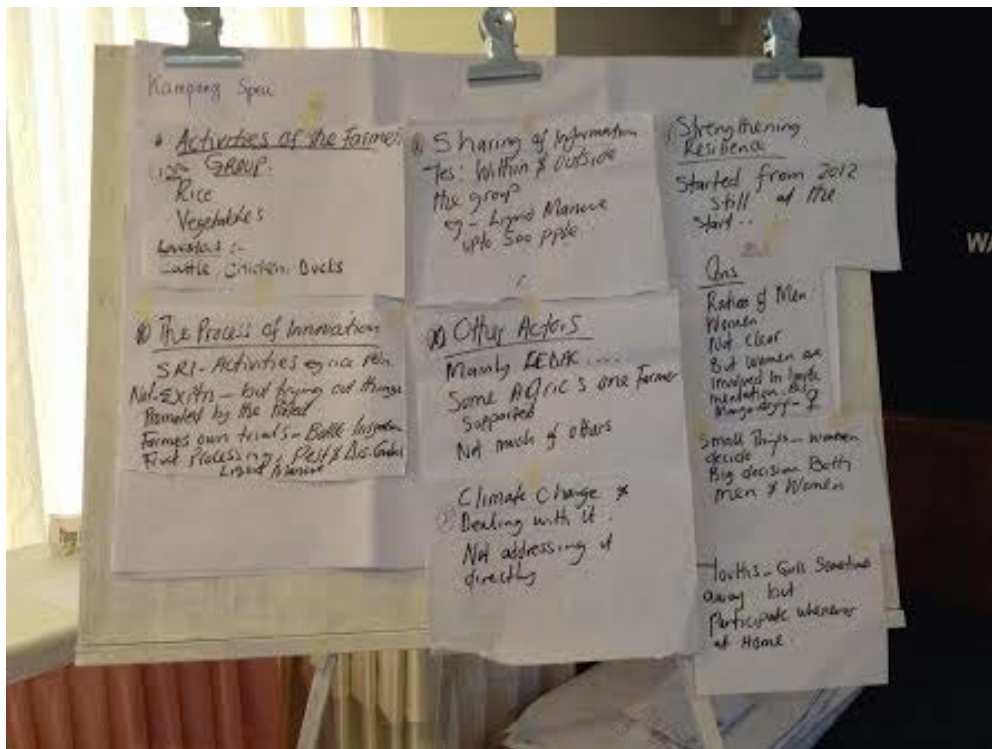 Kampong Speu
Activities of the Farmer
GROUP.
Rice
Vegetables
Livestock :-
Cattle, Chicken, Ducks
The Process of Innovation
SRI - Activities eg rice
but trying out things
Promoted by the
Farmers own trials - Bottle
Fruit Processing, Pest & Dis.
Liquid Manure
Sharing of Information
Yes: Within & Outside
the group
eg - Liquid Manure
upto 500 pple
Other Actors
Mainly CEDAC ....
Some Agric's one Farmer
Supported
Not much of others
Climate Change &
Dealing with it.
Not addressing it
directly
Strengthening
Resilience
Started from 2012
Still at the
Start ..
Ratios of Men
Women
Not Clear
But women are
involved in
mentation. eg
♀
Small Things - women
decide
Big decision Both
men & Women
Youths - Girls Sometimes
away but
Participate whenever
at Home